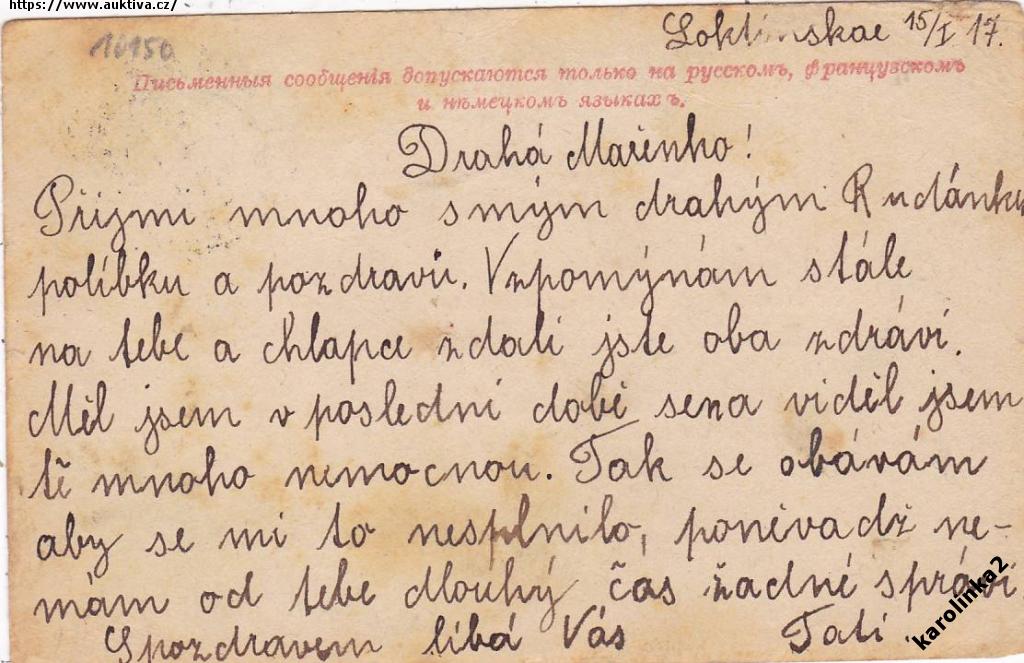 https://www.auktiva.cz/
Loktinskoe 15/I 17.
10150
Письменныя сообщенія допускаются только на русскомъ, французскомъ
и нѣмецкомъ языкахъ.
Drahá Mařenko!
Přijmi mnoho s mým drahým Rudánkem
políbku a pozdravů. Vzpomýnám stále
na tebe a chlapce zdali jste oba zdrávi.
Měl jsem v poslední době sen a viděl jsem
tě mnoho nemocnou. Tak se obávám
aby se mi to nesplnilo, poněvadž ne-
mám od tebe dlouhý čas žádné správi
S pozdravem líbá Vás Tati.
karolinka2